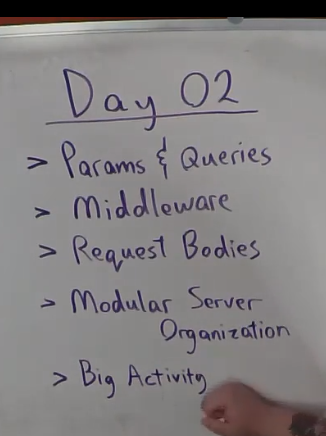 Day 02
> Params & Queries
> Middleware
> Request Bodies
> Modular Server
Organization
> Big Activity